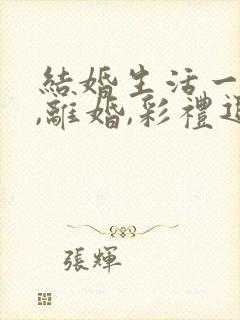 結婚生活一
,離婚,彩禮退
張輝